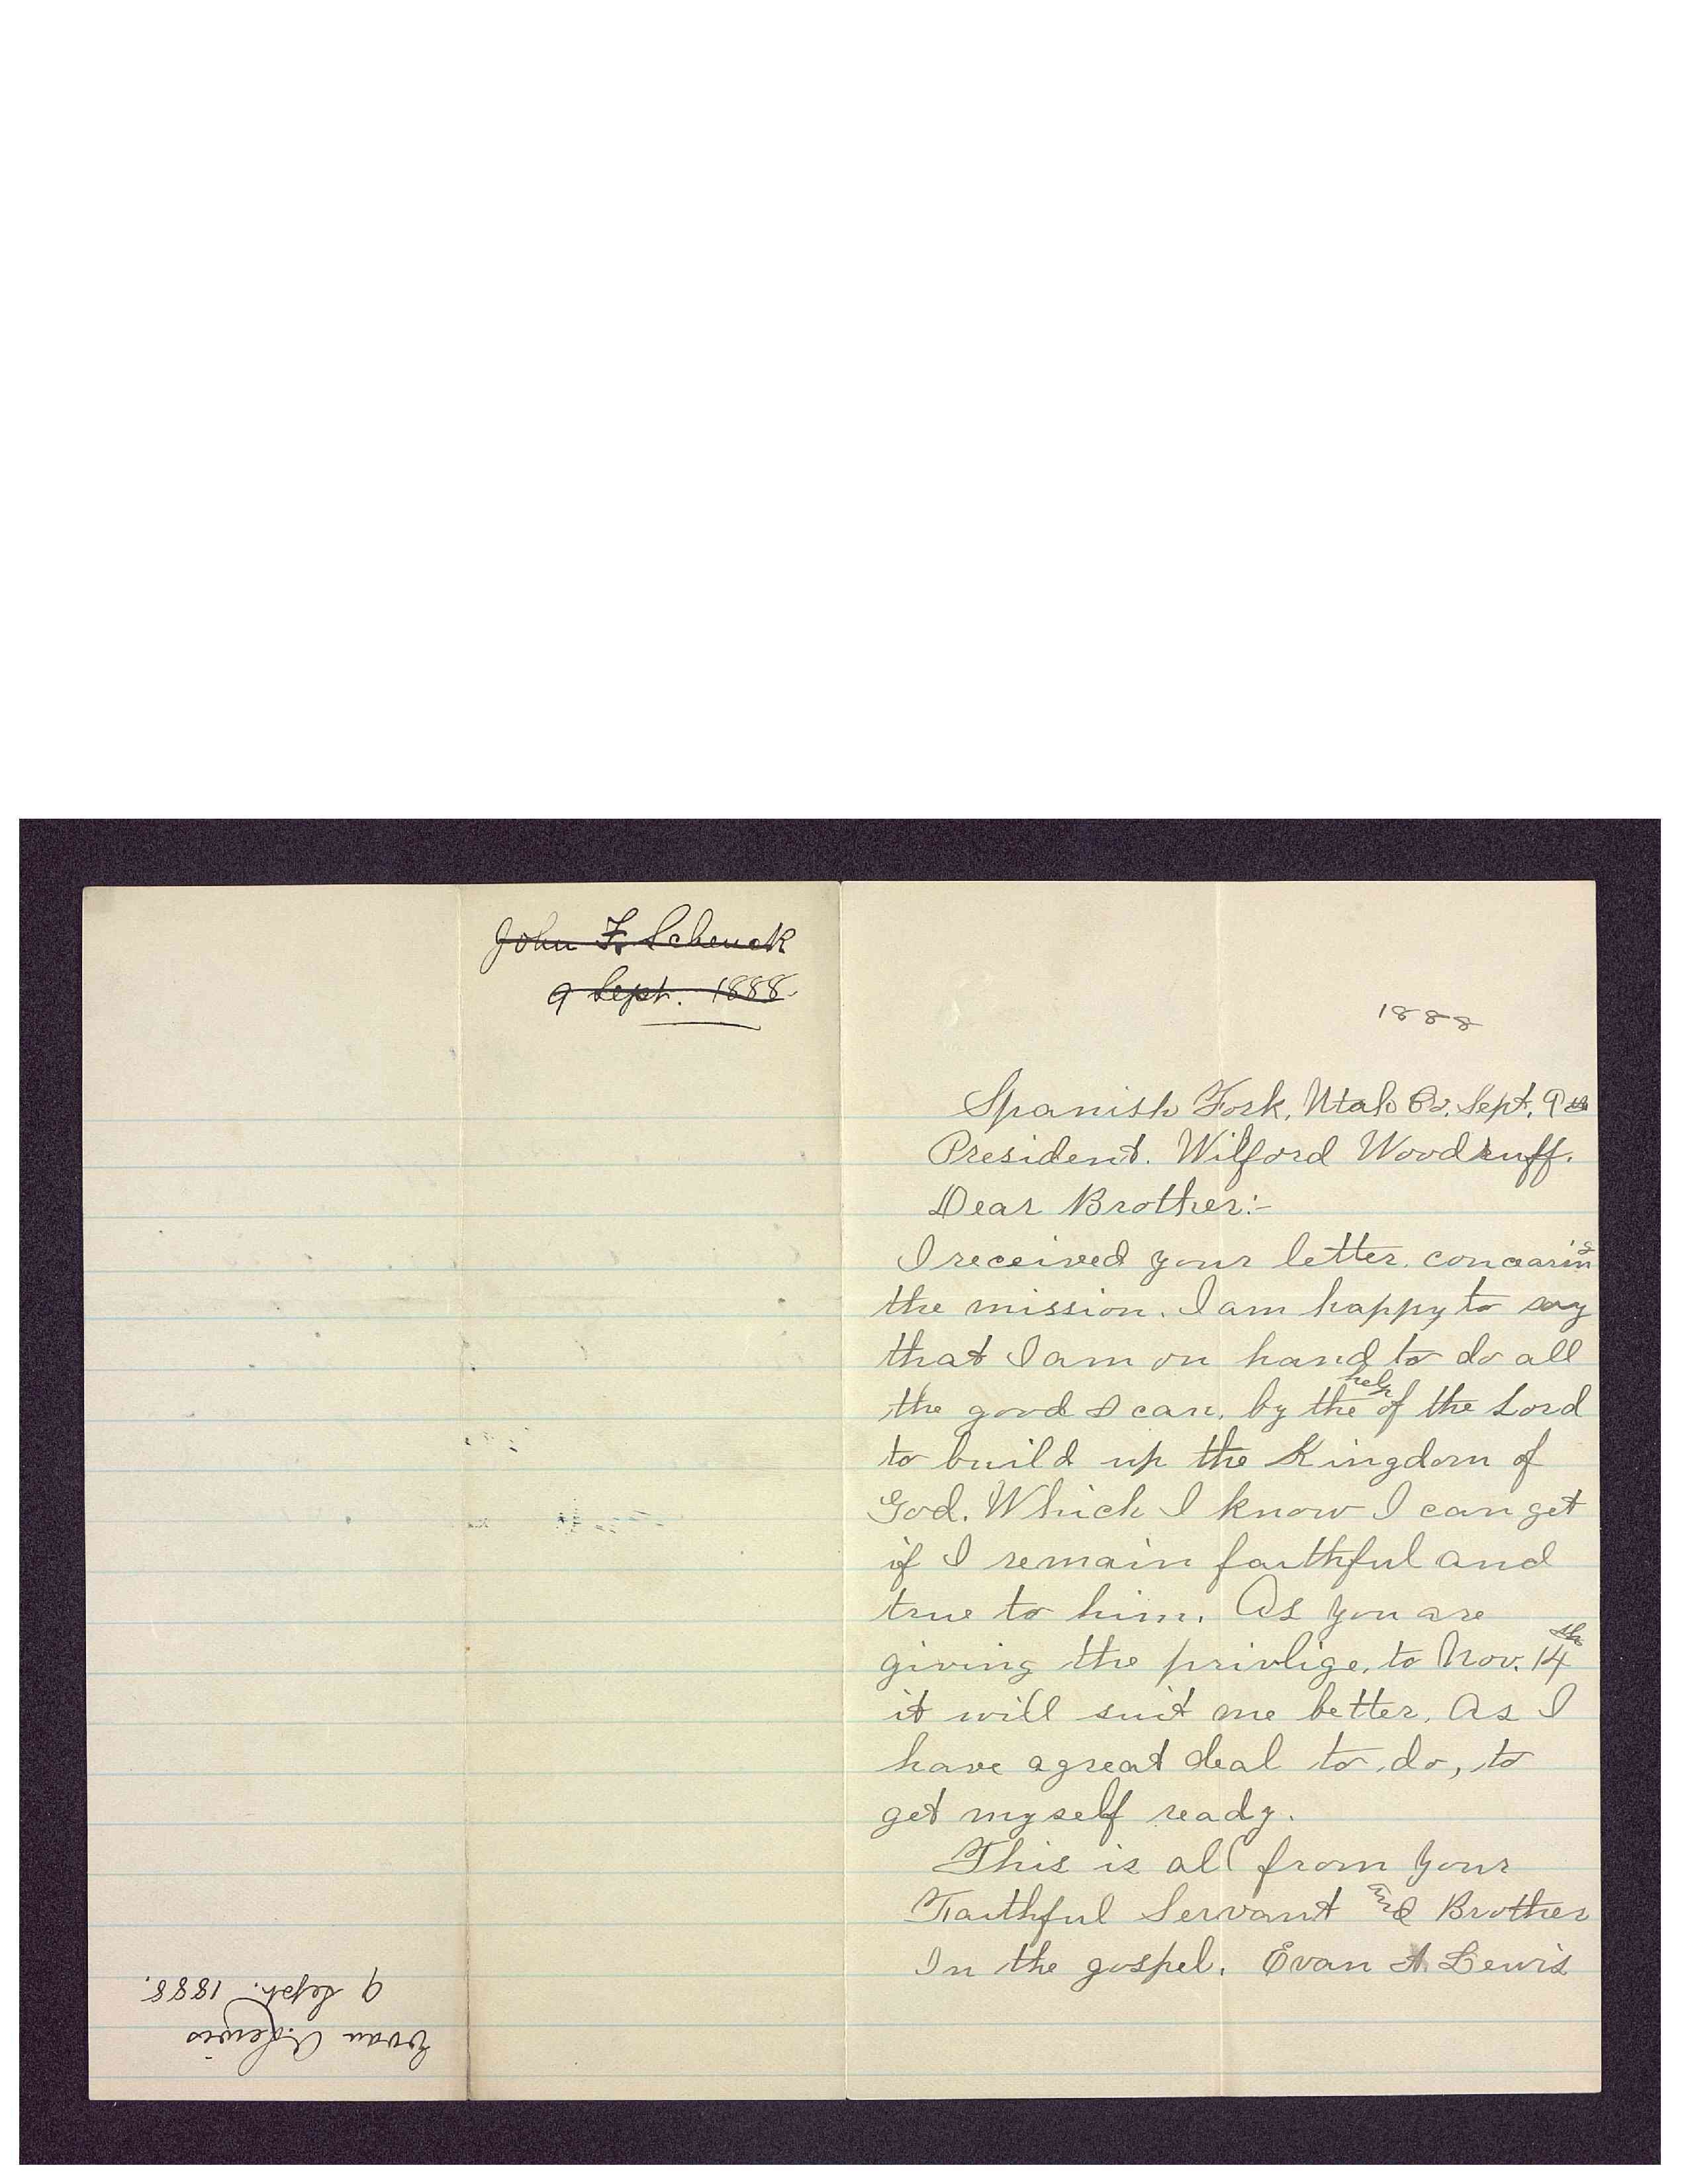 John F. Schenck
9 Sept. 1888.
1888
Spanish Fork, Utah Co. Sept. 9th
President. Wilford Woodruff.
Dear Brother:-
I received your letter. concearing
the mission. I am happy to say
that I am on hand to do all
the good I can, by the help of the Lord
to build up the Kingdom of
God. Which I know I can get
if I remain faithful and
true to him. As you are
giving the privlige, to Nov. 14th
it will suit me better, As I
have a great deal to do, to
get myself ready.
This is all from Your
Faithful Servant and Brother
In the gospel. Evan A. Lewis
Evan A. Lewis
9 Sept. 1888.